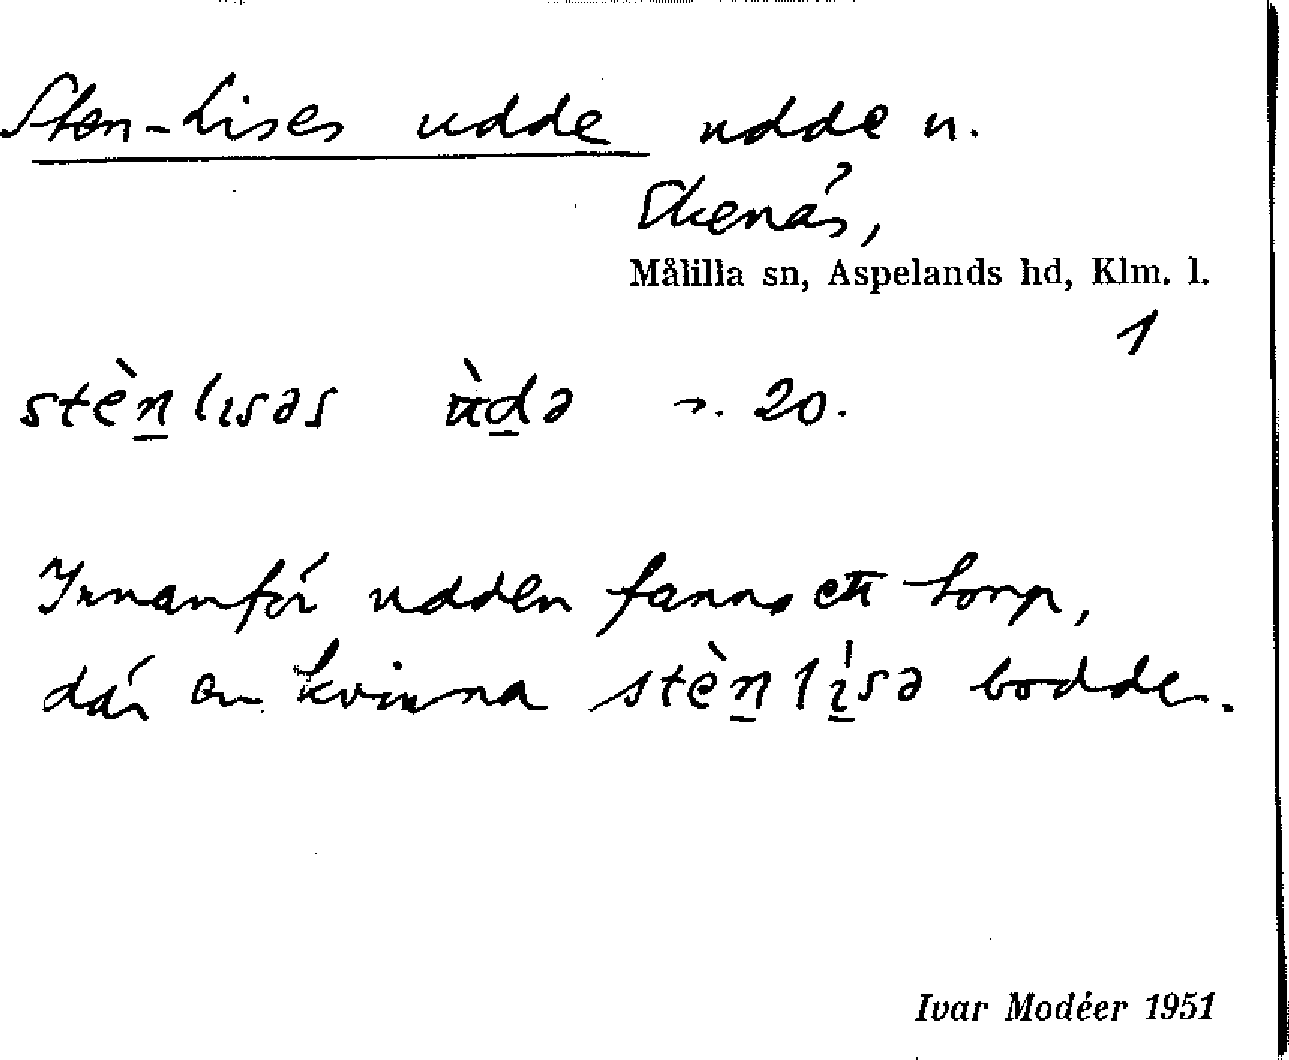 Sten-Lises udde udde n.
Skenäs,
Målilla sn, Aspelands hd, Klm. l.
1
stèn̲lısəs ùd̲ə 20.
Innanför udden fanns ett torp,
där en kvinna stèn̲lı̲́sə bodde.
Ivar Modéer 1951